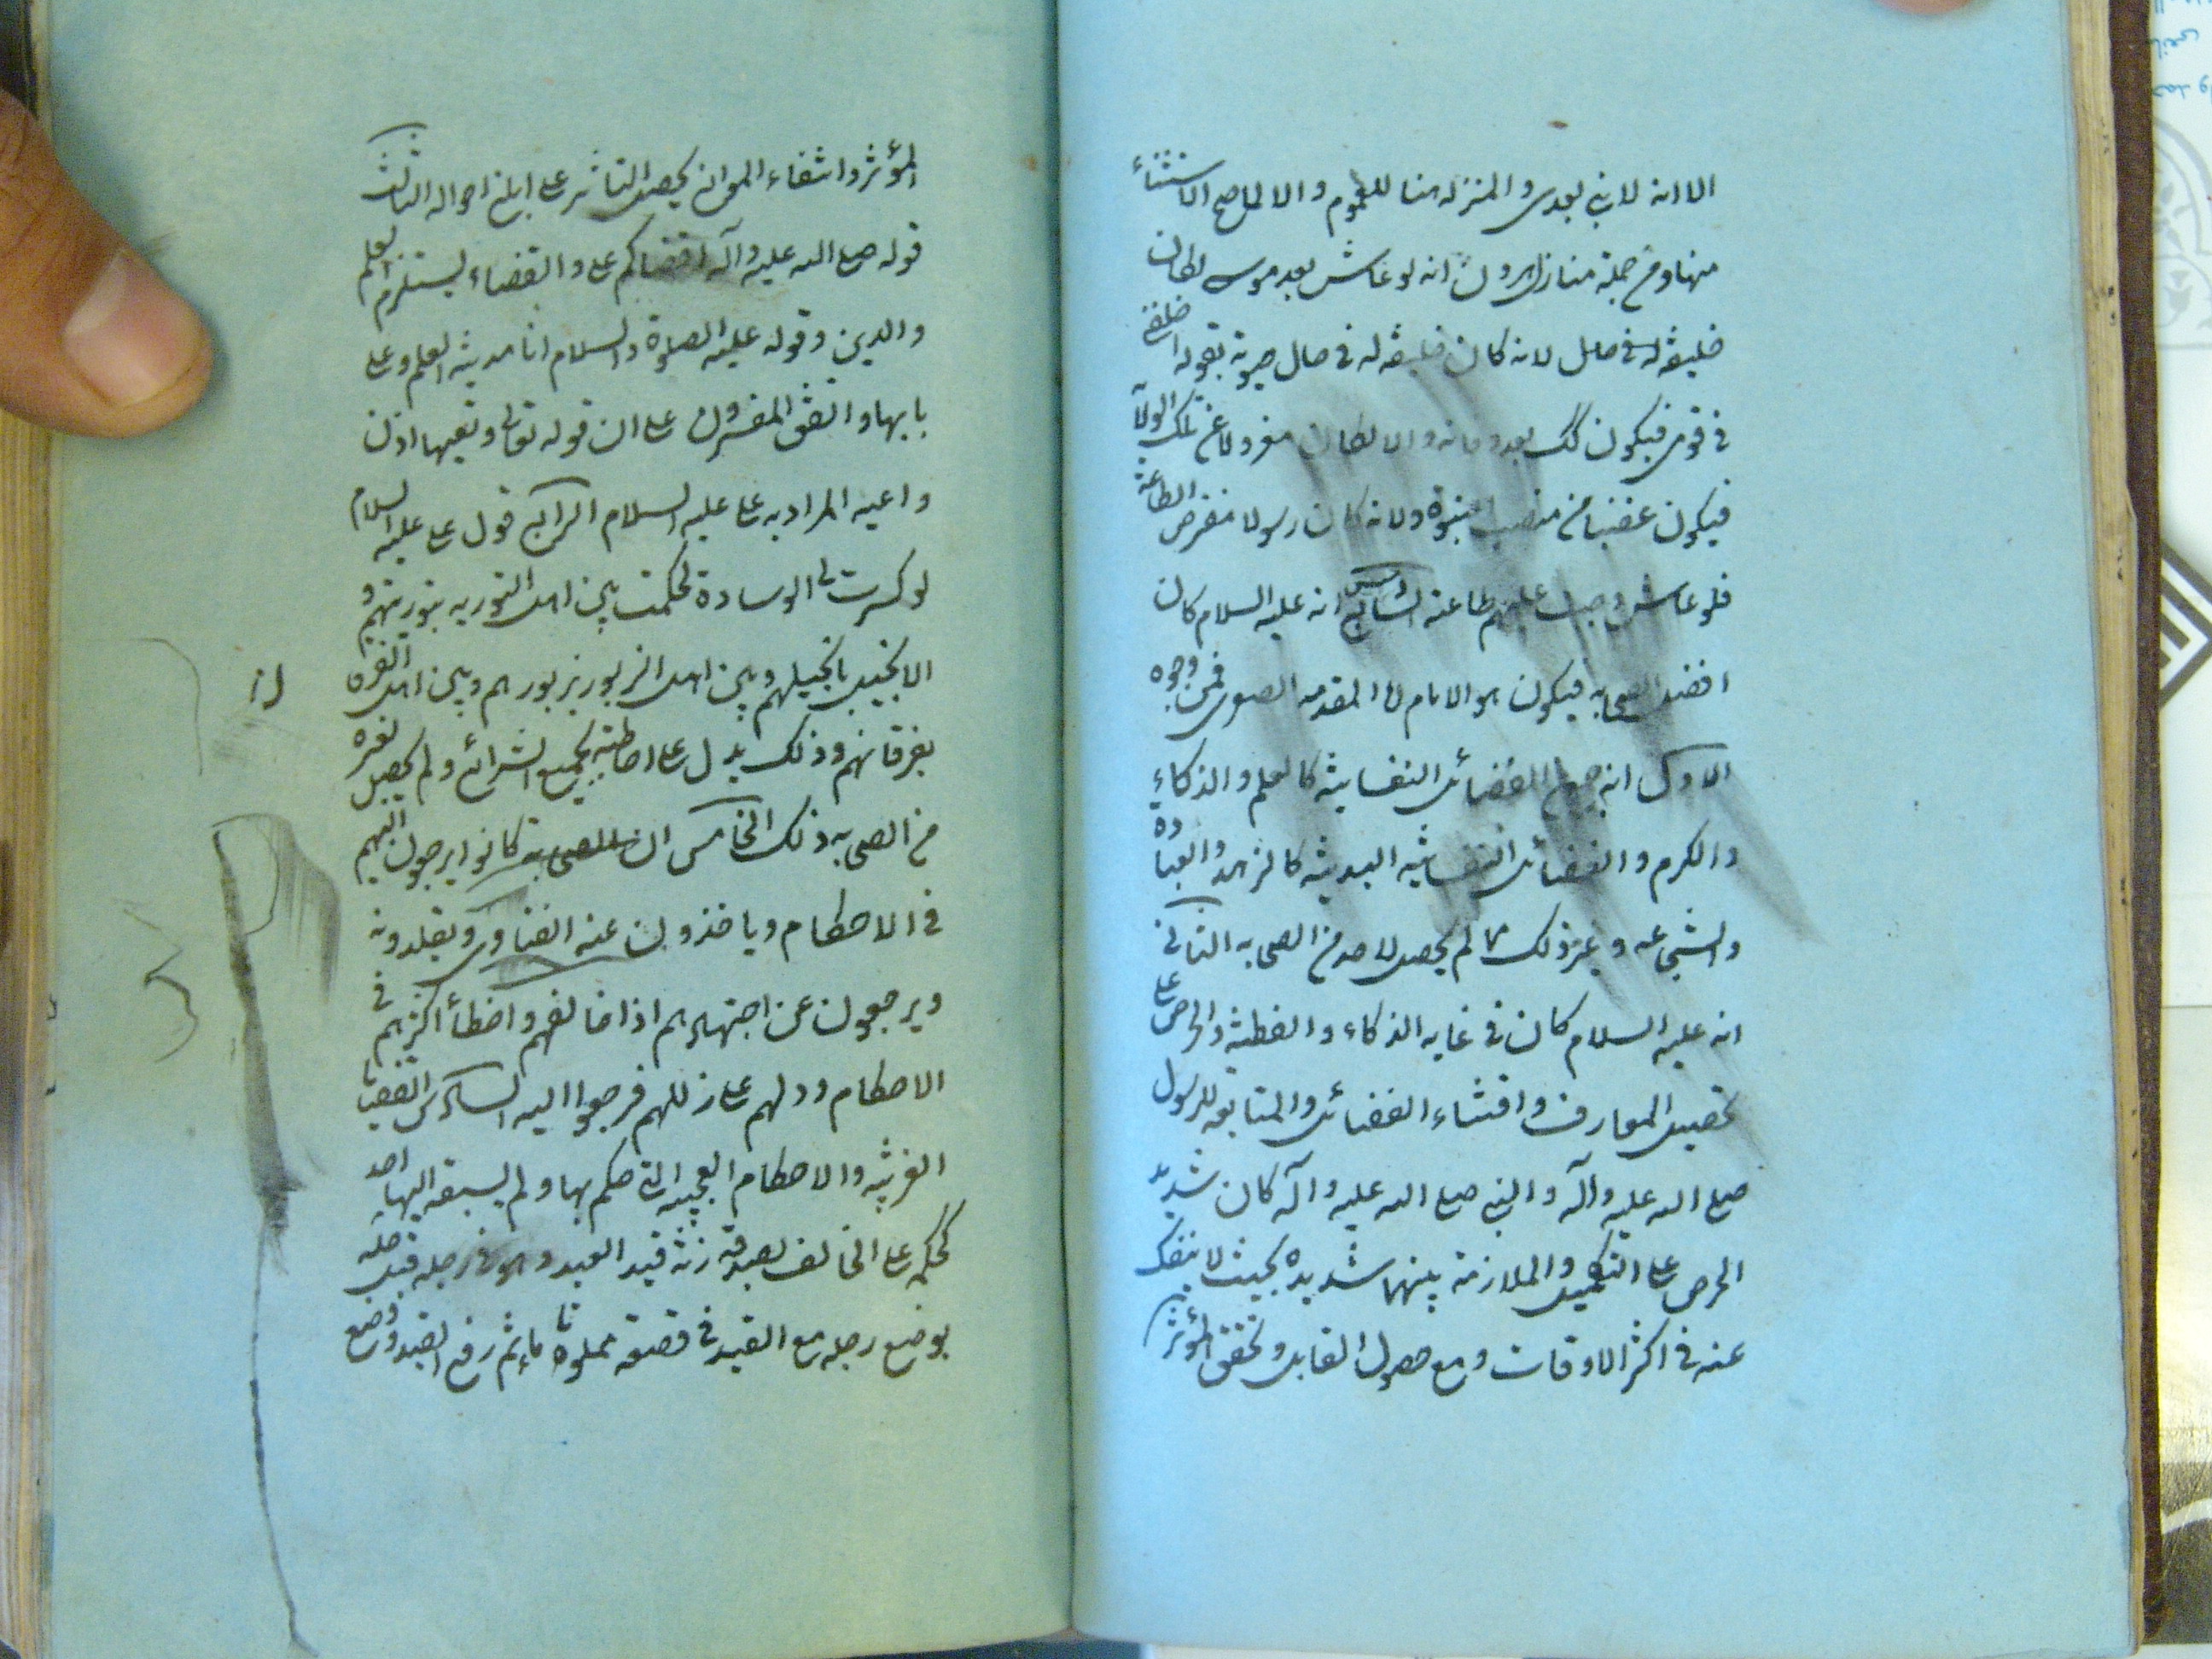 الا انه لا نبي بعدى و المنزله هنا للعموم و الا لما صح الاستثناء
منها و من جملة منازل هرون انه لو عاش بعد موسى لكان
خليفة له فى حال لانه كان خليفة له فى حال حيوته بقوله اخلفنى
فى قومى فيكون كك بعد وفاته و الا لكان معزولا عن تلك الولاية
فيكون غضبا من منصب النبوة و لانه كان رسولا مفترض الطاعة
فلو عاش وجبت عليهم طاعته السادس انه عليه السلام كان
افضل الصحابه فيكون هو الامام اما المقدمه الصغرى فمن وجوه
الاول انه جمع الفضائل النفسانية كالعلم و الذكاء
و الكرم و الفضائل النفسانيه البدنية كالزهد و العبادة
و الشجاعه و غير ذلك ما لم يحصل لاحد من الصحابه الثانى
انه عليه السلام كان فى غايه الذكاء و الفطنة و الحرص على
تحصيل المعارف و اقتناء الفضائل و المتابعه للرسول
صلى الله عليه و آله و النبى صلى الله عليه و آله كان شديد
الحرص على التكميل و الملازمة بينهما شديده بحيث لا ينفك
عنه فى اكثر الاوقات و مع حصول القابل و تحقق المؤثر
المؤثر و انتفاء الموانع يحصل التاثير على ابلغ احواله الثالث
قوله صلى الله عليه و آله اقضاكم على و القضاء يستلزم العلم
و الدين و قوله عليه الصلوة و السلام انا مدينة العلم و على
بابها و اتفق المفسرون على ان قوله تعالى و تعيها اذن
واعيه المراد به على عليه السلام الرابع قول على عليه السلام
لو كسرت لى الوسادة لحكمت بين اهل التوريه بتوريتهم و
الانجيل بانجيلهم و بين اهل الزبور بزبورهم و بين اهل الفر
بفرقانهم و ذلك يدل على احاطته بجميع الشرائع و لم يحصل لغيره
من الصحابه ذلك الخامس ان الصحابة كانوا يرجعون اليه
فى الاحكام و ياخذون عنه الفتاوى و يقلدونه
و يرجعون عن اجتهادهم اذا خالفهم و اخطأ اكثرهم فى
الاحكام و دلهم على زللهم فرجعوا اليه السادس القضايا
الغريبه و الاحكام العجيبه التى حكم بها و لم يسبقه اليها احد
كحكمه على الحالف بصدقة زنة قيد العبد و هو فى رجله قبل حله
بوضع رجله مع القيد فى قصعة مملوة ماء ثم رفع القيد و وضع